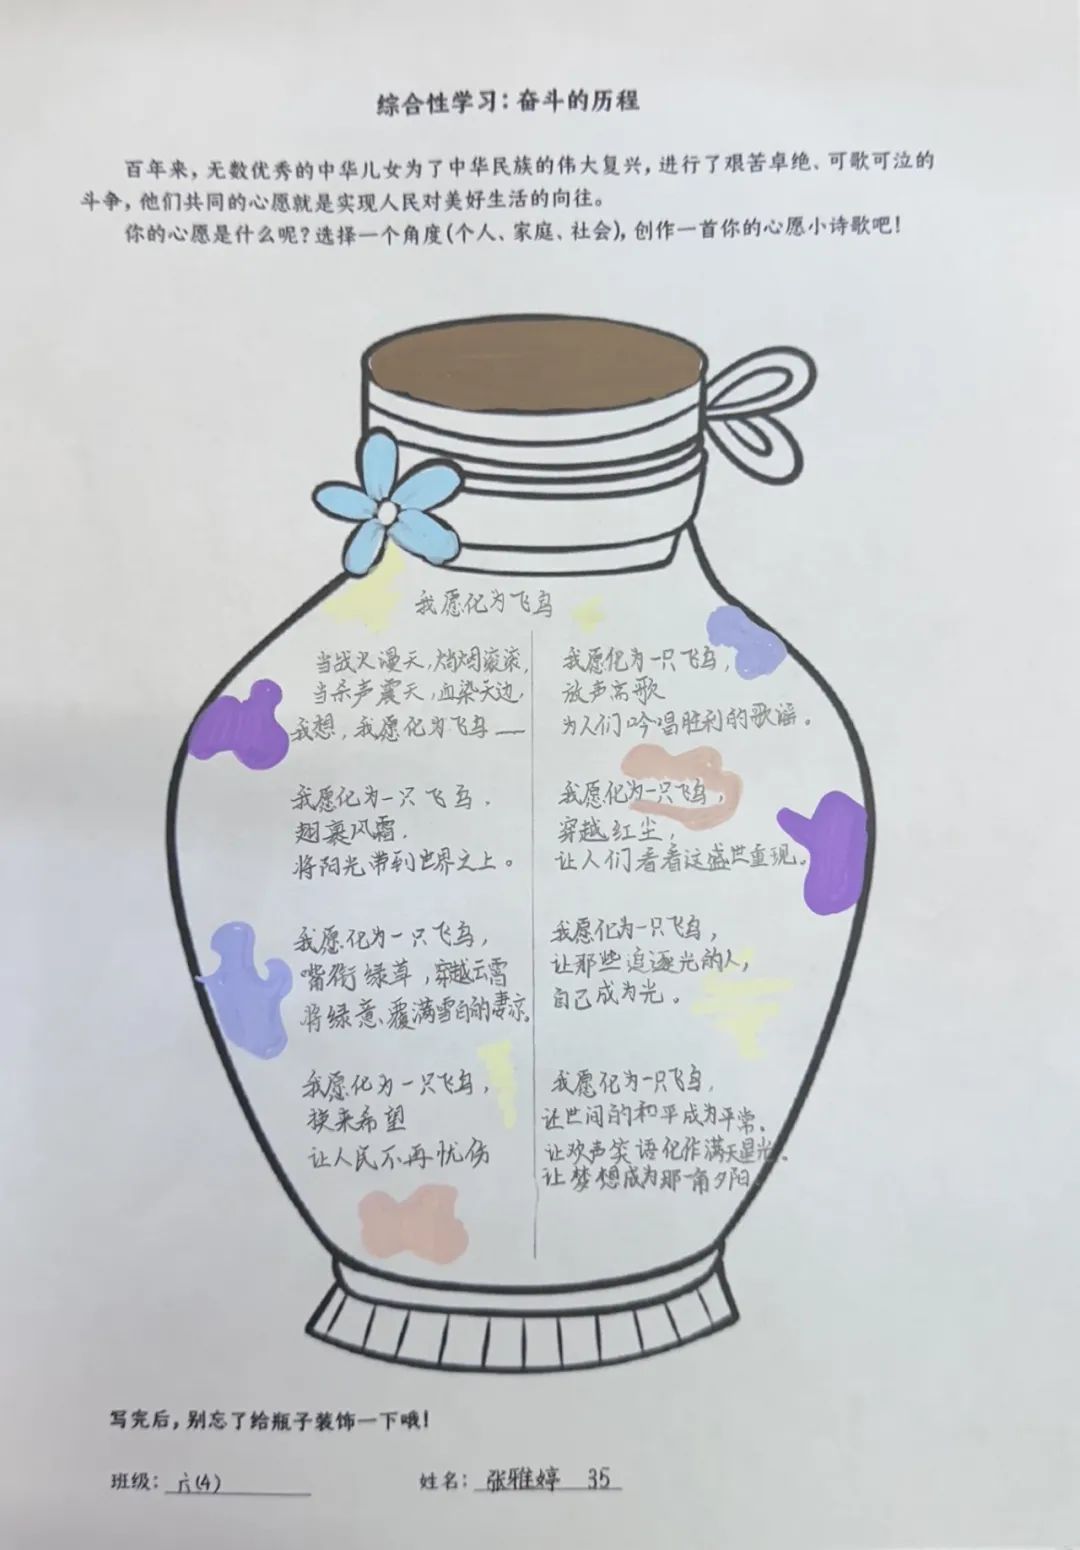 综合性学习：奋斗的历程
百年来，无数优秀的中华儿女为了中华民族的伟大复兴，进行了艰苦卓绝、可歌可泣的
斗争，他们共同的心愿就是实现人民对美好生活的向往。
你的心愿是什么呢？选择一个角度（个人、家庭、社会），创作一首你的心愿小诗歌吧！
我愿化为飞鸟
当战火漫天，
当杀声震天，血染天边，
我想，我愿化为飞鸟——
我愿化为一只飞鸟，
翅裹风霜，
将阳光带到世界之上。
我愿化为一只飞鸟，
嘴衔绿草，穿越云霄
将绿意覆满雪白的凄凉。
我愿化为一只飞鸟，
换来希望
让人民不再忧伤
我愿化为一只飞鸟，
放声高歌
为人们吟唱胜利的歌谣。
我愿化为一只飞鸟，
穿越红尘，
让人们看看这盛世重现。
我愿化为一只飞鸟，
让那些追逐光的人，
自己成为光。
我愿化为一只飞鸟，
让世间的和平成为平常，
让欢声笑语化作满天星光，
让梦想成为那一角夕阳。
写完后，别忘了给瓶子装饰一下哦！
班级：六(4)
姓名：张雅婷 35